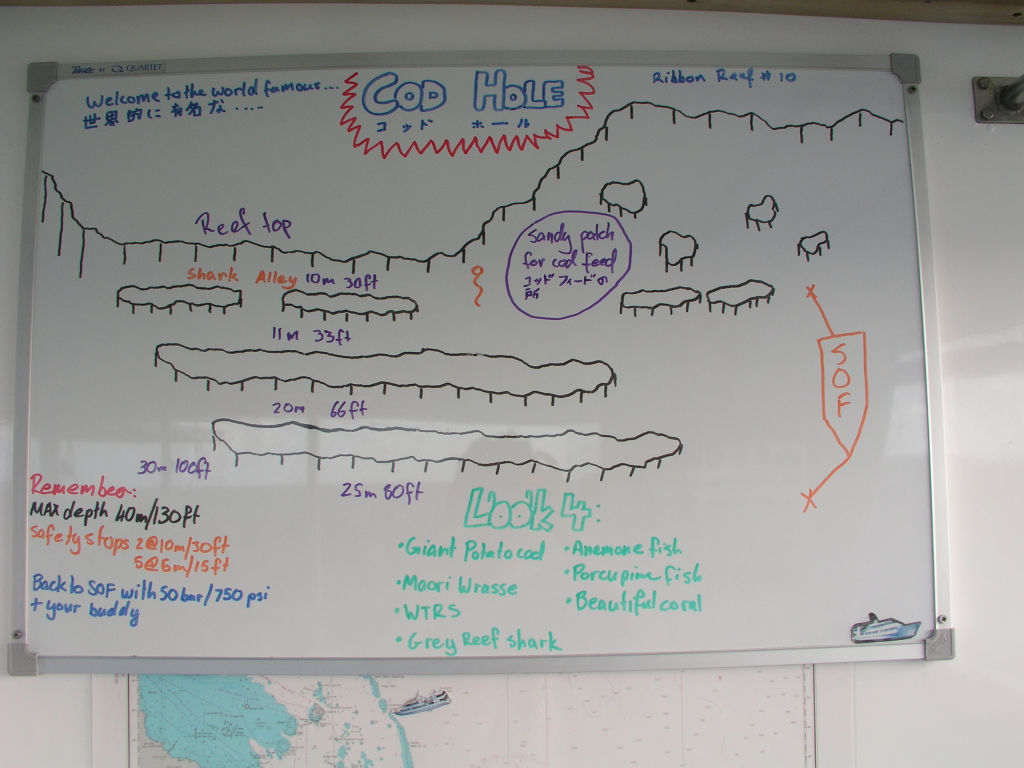 QUARTET
Welcome to the world famous...
世界的に有名な....
COD HOLE
コッド ホール
Ribbon Reef #10
Reef top
Shark Alley 10m 30ft
Sandy patch
for cod feed
コッドフィードの
所
11m 33ft
SOF
20m 66ft
30m 100ft
25m 80ft
Remember:
MAX depth 40m/130ft
Safety stops 2@10m/30ft
5@5m/15ft
Back to SOF with 50bar/750 psi
+ your buddy
Look 4:
• Giant Potato cod
• Maori Wrasse
• WTRS
• Grey Reef shark
• Anemone fish
• Porcupine fish
• Beautiful coral